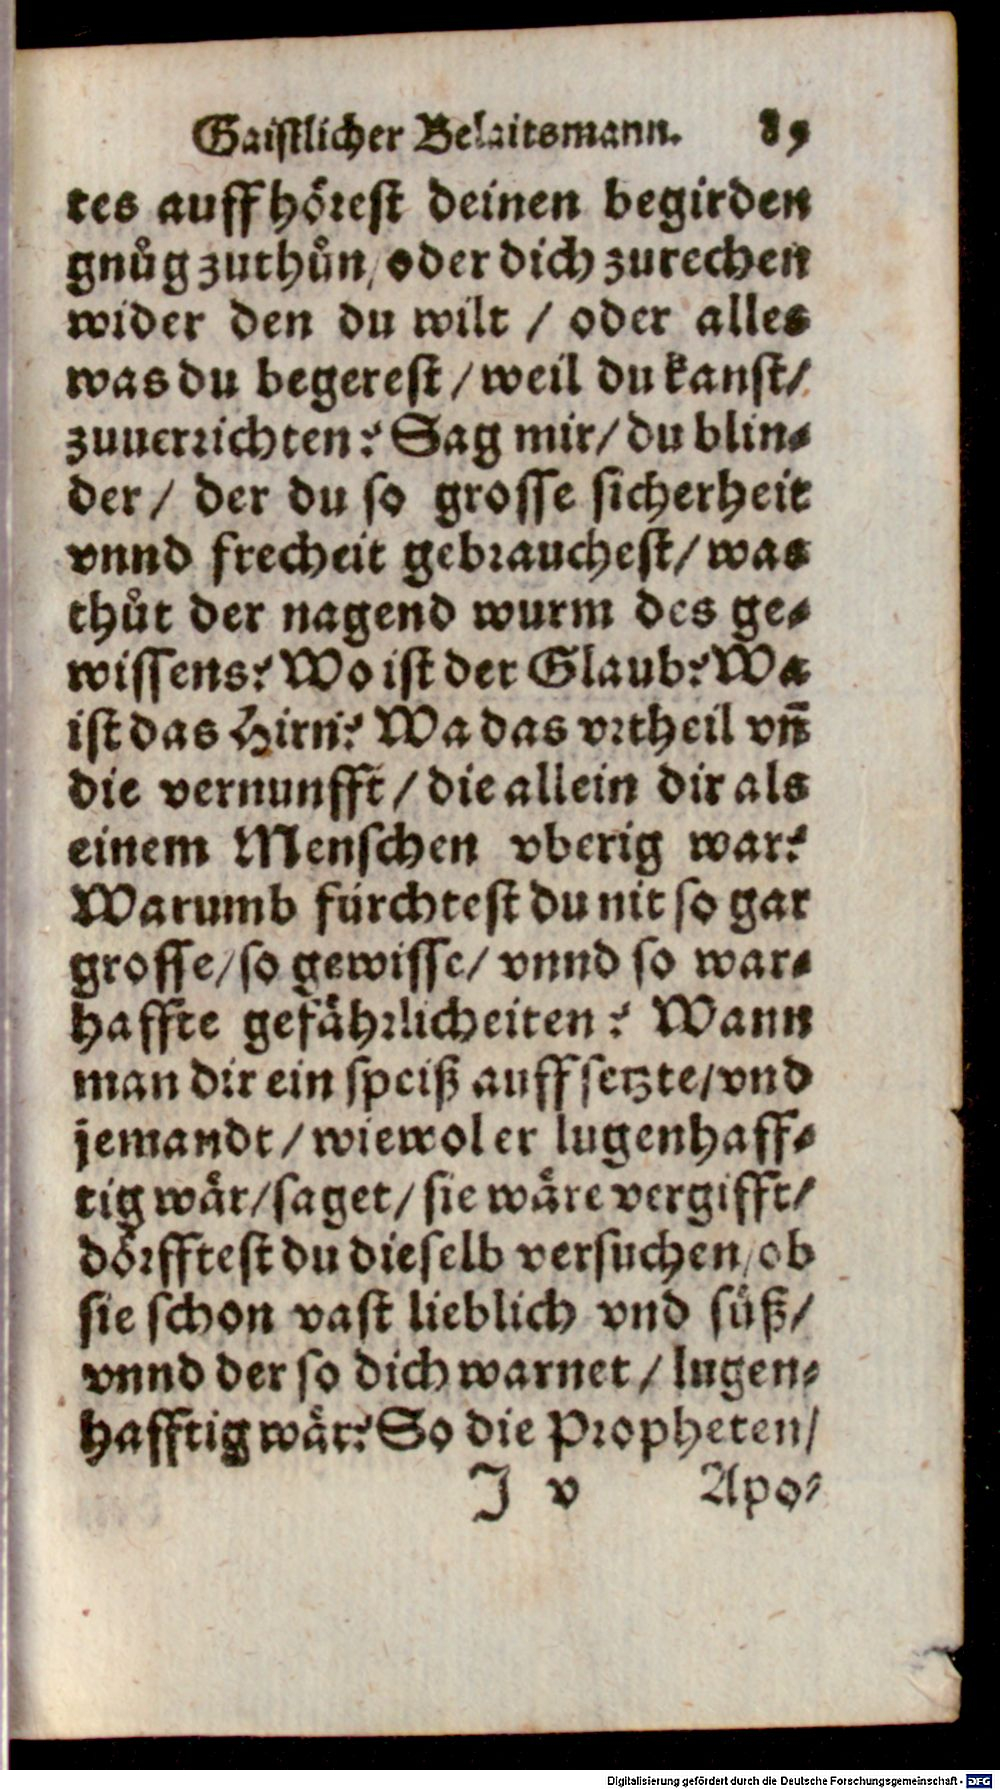 Gaistlicher Belaitsmann. 89
tes auffhörest deinen begirden
gnůg zuthůn/ oder dich zurechen
wider den du wilt / oder alles
was du begerest / weil du kanst/
zuuerrichten? Sag mir/ du blin-
der / der du so grosse sicherheit
vnnd frecheit gebrauchest/ was
thůt der nagend wurm des ge-
wissens? Wo ist der Glaub? Wa
ist das Hirn? Wa das vrtheil vñ
die vernunfft / die allein dir als
einem Menschen vberig war?
Warumb fürchtest du nit so gar
grosse/ so gewisse/ vnnd so war-
haffte gefährlicheiten? Wann
man dir ein speiß auffsetzte/ vnd
jemandt / wiewol er lugenhaff-
tig wär/ saget/ sie wäre vergifft/
dörfftest du dieselb versuchen/ ob
sie schon vast lieblich vnd süß/
vnnd der so dich warnet / lugen-
hafftig wär? So die Propheten/
J v Apo-
Digitalisierung gefördert durch die Deutsche Forschungsgemeinschaft - DFG